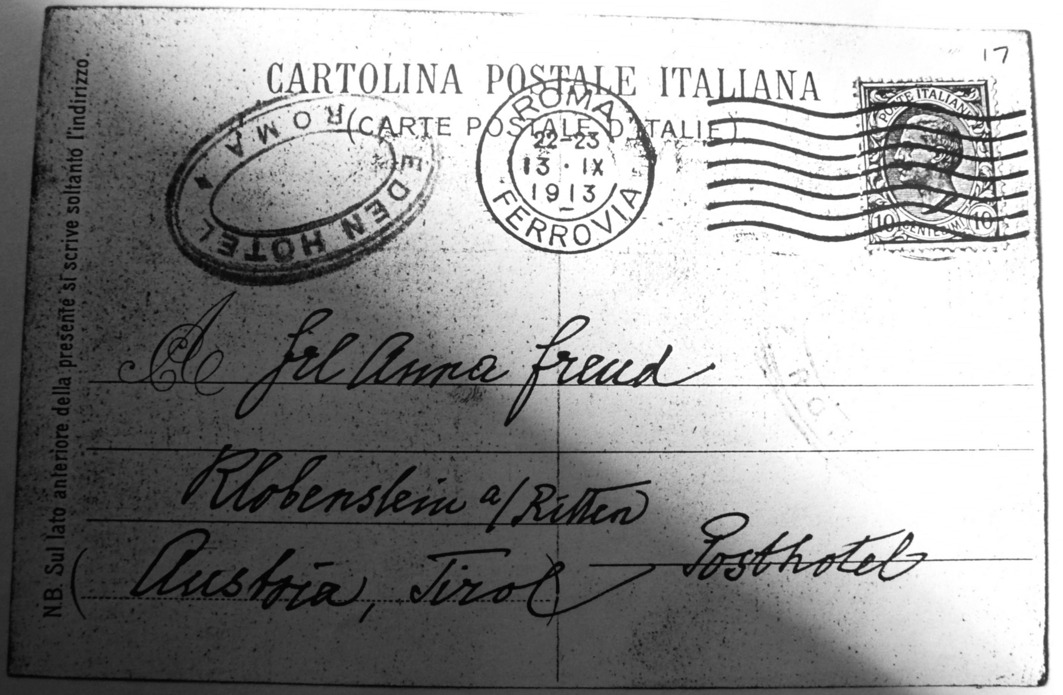 17
CARTOLINA POSTALE ITALIANA
(CARTE POSTALE D'ITALIE)
EDEN HOTEL
ROMA
ROMA
22-23
13·IX
1913
FERROVIA
POSTE ITALIANE
10 CENTESIMI 10
A
Frl Anna Freud
Klobenstein a/Ritten
(Austria, Tirol) Posthotel
NB. Sul lato anteriore della presente si scrive soltanto l'indirizzo.